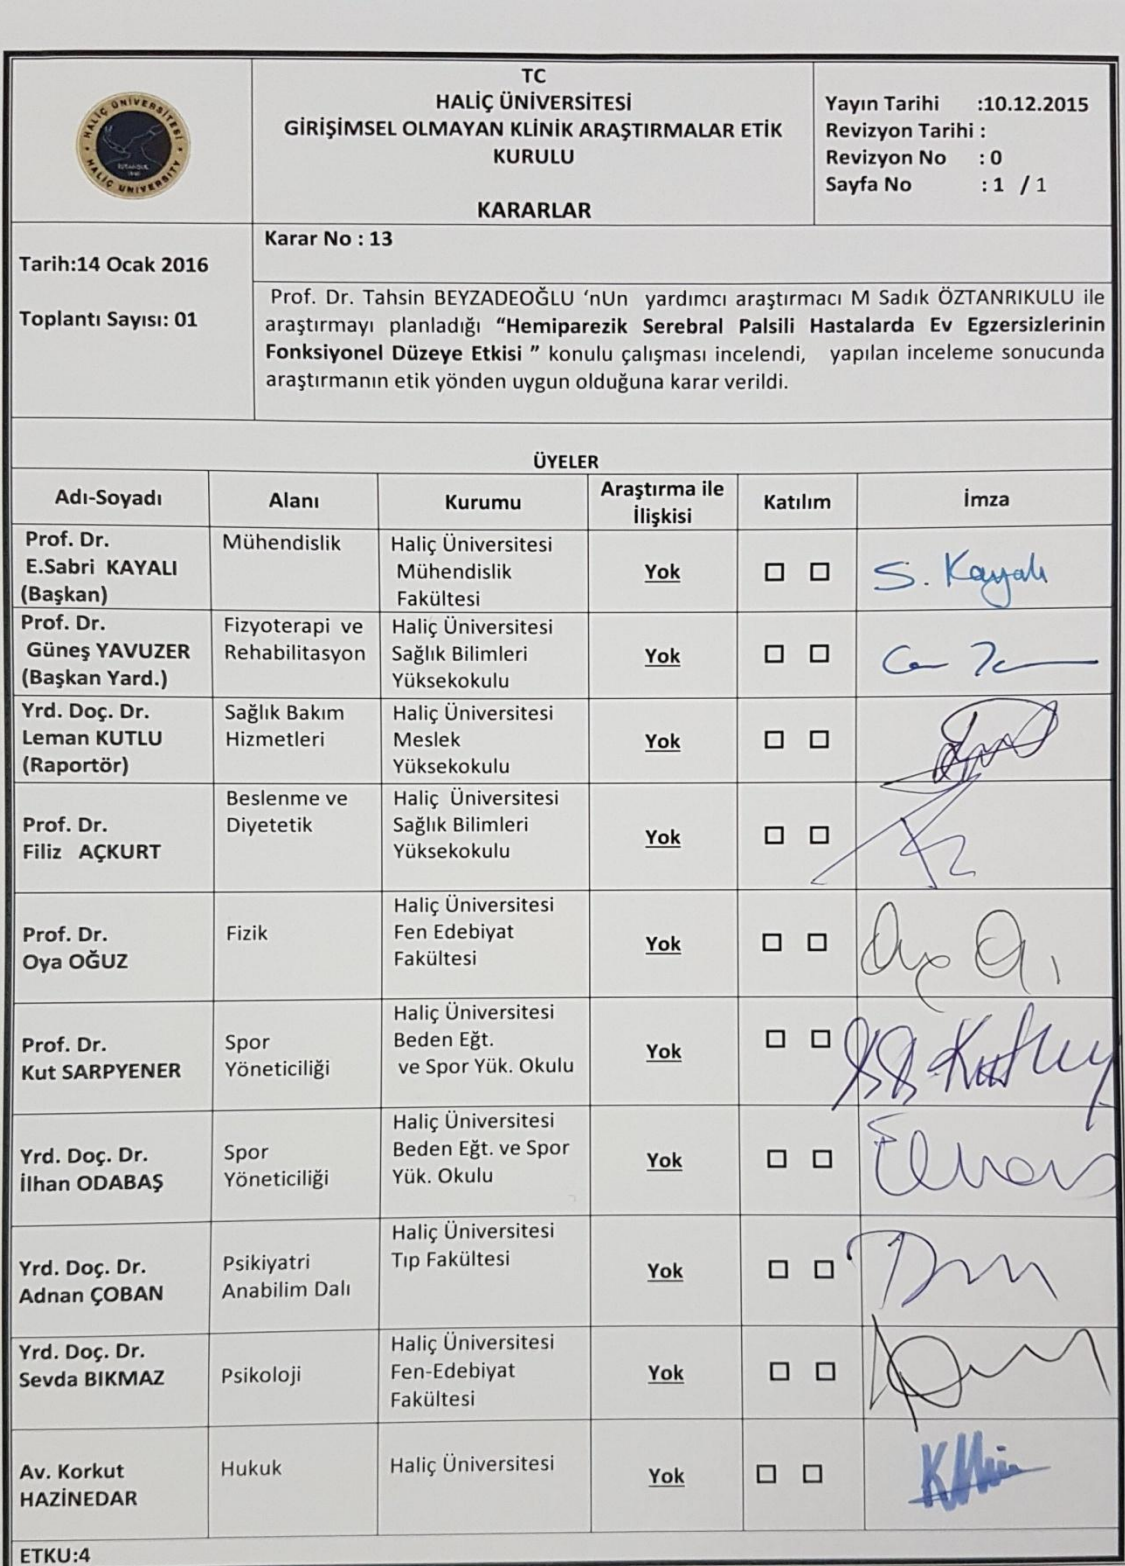 HALİÇ ÜNİVERSİTESİ
HALIC UNIVERSITY
TC
HALİÇ ÜNİVERSİTESİ
GİRİŞİMSEL OLMAYAN KLİNİK ARAŞTIRMALAR ETİK
KURULU
KARARLAR
Yayın Tarihi :10.12.2015
Revizyon Tarihi :
Revizyon No : 0
Sayfa No : 1 / 1
Tarih:14 Ocak 2016
Toplantı Sayısı: 01
Karar No : 13
Prof. Dr. Tahsin BEYZADEOĞLU 'nUn yardımcı araştırmacı M Sadık ÖZTANRIKULU ile
araştırmayı planladığı “Hemiparezik Serebral Palsili Hastalarda Ev Egzersizlerinin
Fonksiyonel Düzeye Etkisi ” konulu çalışması incelendi, yapılan inceleme sonucunda
araştırmanın etik yönden uygun olduğuna karar verildi.
ÜYELER
Adı-Soyadı Alanı Kurumu Araştırma ile İlişkisi Katılım İmza
Prof. Dr.
E.Sabri KAYALI
(Başkan)
Mühendislik
Haliç Üniversitesi
Mühendislik
Fakültesi
Yok
S. Kayalı
Prof. Dr.
Güneş YAVUZER
(Başkan Yard.)
Fizyoterapi ve
Rehabilitasyon
Haliç Üniversitesi
Sağlık Bilimleri
Yüksekokulu
Yok
Yrd. Doç. Dr.
Leman KUTLU
(Raportör)
Sağlık Bakım
Hizmetleri
Haliç Üniversitesi
Meslek
Yüksekokulu
Yok
Prof. Dr.
Filiz AÇKURT
Beslenme ve
Diyetetik
Haliç Üniversitesi
Sağlık Bilimleri
Yüksekokulu
Yok
Prof. Dr.
Oya OĞUZ
Fizik
Haliç Üniversitesi
Fen Edebiyat
Fakültesi
Yok
Prof. Dr.
Kut SARPYENER
Spor
Yöneticiliği
Haliç Üniversitesi
Beden Eğt.
ve Spor Yük. Okulu
Yok
Yrd. Doç. Dr.
İlhan ODABAŞ
Spor
Yöneticiliği
Haliç Üniversitesi
Beden Eğt. ve Spor
Yük. Okulu
Yok
Yrd. Doç. Dr.
Adnan ÇOBAN
Psikiyatri
Anabilim Dalı
Haliç Üniversitesi
Tıp Fakültesi
Yok
Yrd. Doç. Dr.
Sevda BIKMAZ
Psikoloji
Haliç Üniversitesi
Fen-Edebiyat
Fakültesi
Yok
Av. Korkut
HAZİNEDAR
Hukuk
Haliç Üniversitesi
Yok
ETKU:4